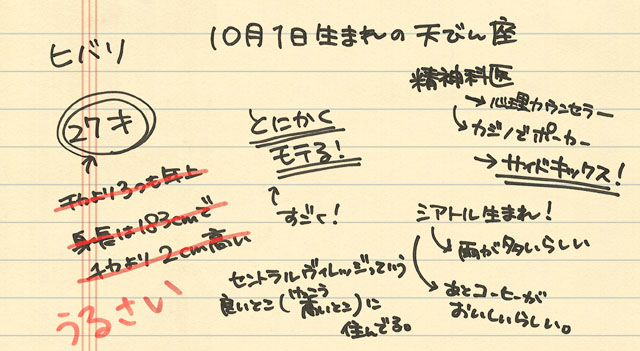 ヒバリ
10月7日生まれの天びん座
27才
チカより3つも年上
身長は183cmで
チカより2cm高い
うるさい
とにかく
モテる!
すごく!
精神科医
→心理カウンセラー
カジノでポーカー
→サイドキックス!
シアトル生まれ!
雨が多いらしい
あとコーヒーが
おいしいらしい。
セントラルヴィレッジっていう
良いとこ(けっこう高いとこ)に
住んでる。